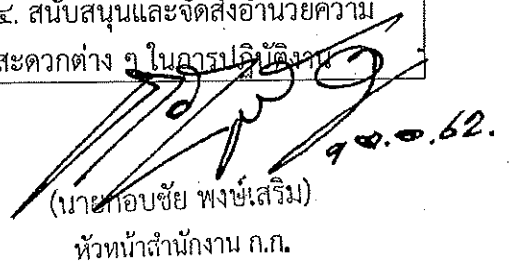 ๔. สนับสนุนและจัดสิ่งอำนวยความ
สะดวกต่าง ๆ ในการปฏิบัติงาน
(นายกอบชัย พงษ์เสริม)
หัวหน้าสำนักงาน ก.ก.